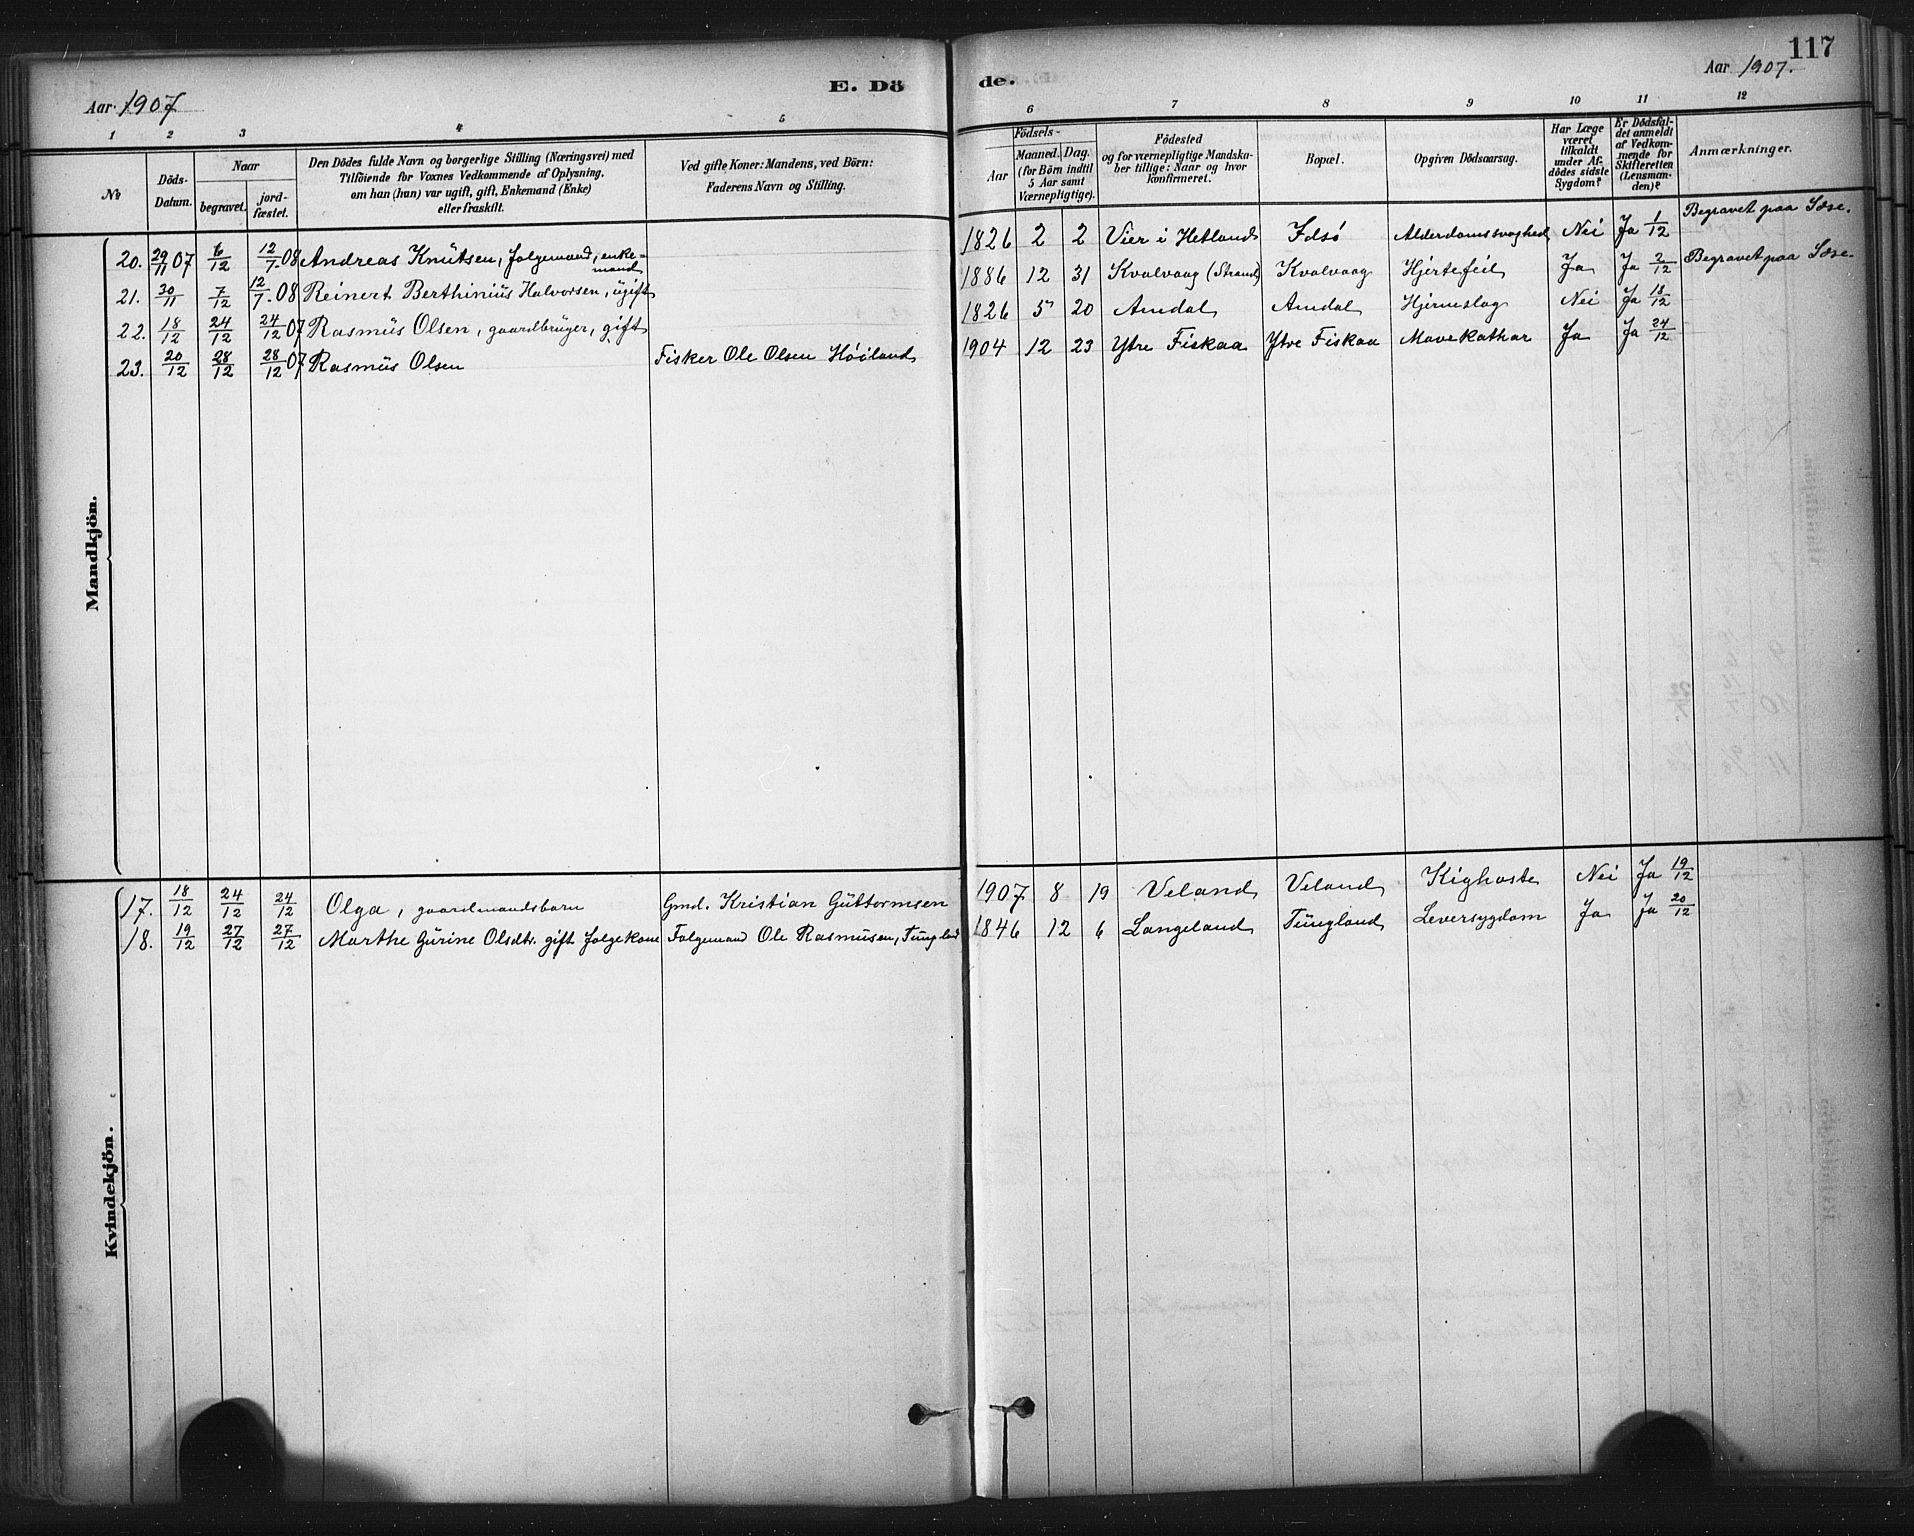 117
Aar 1907
E. Dö
de.
Aar 1907.
1 2 3 4 5 6 7 8 9 10 11 12
№
Döds-Datum.
Naar
begravet.
jord-fæstet.
Den Dödes fulde Navn og borgerlige Stilling (Næringsvei) med
Tilföiende for Voxnes Vedkommende af Oplysning,
om han (hun) var ugift, gift, Enkemand (Enke)
eller fraskilt.
Ved gifte Koner: Mandens, ved Börn:
Faderens Navn og Stilling.
Födsels-
Aar
Maaned. Dag.
(for Börn indtil
5 Aar samt
Værnepligtige).
Födested
og for værnepligtige Mandska-
ber tillige: Naar og hvor
konfirmeret.
Bopæl.
Opgiven Dödsaarsag.
Har Læge
været
tilkaldt
under Af-
dödes sidste
Sygdom?
Er Dödsfal-
det anmeldt
af Vedkom-
mende for
Skifteretten
(Lensman-
den)?
Anmærkninger.
Mandkjön.
20. 29/11 07 6/12 12/7.08 Andreas Knutsen, folgemand, enke-mand 1826 2 2 Vier i Hetland Idsö Alderdomssvaghed Nei Ja 1/12 Begravet paa Idse.
21. 30/11 7/12 12/7.08 Reinert Berthinius Halvorsen, ugift 1886 12 31 Kvalvaag (Strand) Kvalvaag Hjertefeil Ja Ja 2/12 Begravet paa Idse.
22. 18/12 24/12 24/12 07 Rasmus Olsen, gaardbruger, gift 1826 5 20 Amdal Amdal Hjerneslag Nei Ja 18/12
23. 20/12 28/12 28/12 07 Rasmus Olsen Fisker Ole Olsen Höiland 1904 12 23 Ytre Fiskaa Ytre Fiskaa Mavekathar Ja Ja 24/12
Kvindekjön.
17. 18/12 24/12 24/12 Olga, gaardmandsbarn Gmd. Kristian Guttormsen 1907 8 19 Veland Veland Kighoste Nei Ja 19/12
18. 19/12 27/12 27/12 Marthe Gurine Olsdtr. gift folgekone Folgemand Ole Rasmusen, Tungland 1846 12 6 Langeland Tungland Leversygdom Ja Ja 20/12